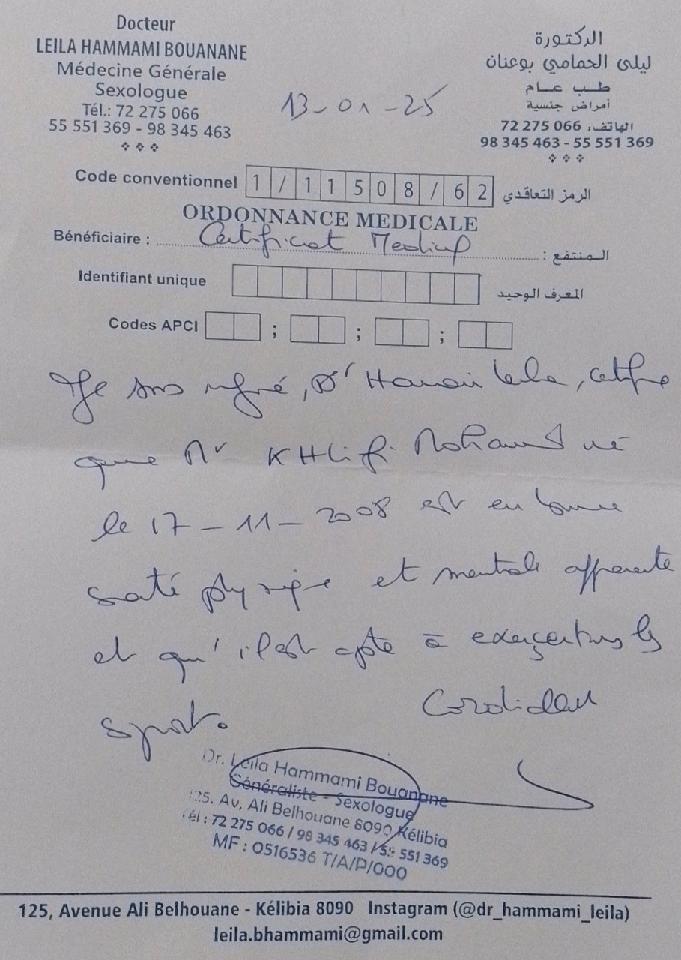 Docteur
LEILA HAMMAMI BOUANANE
Médecine Générale
Sexologue
Tél.: 72 275 066
55 551 369 - 98 345 463
الدكتورة
ليلى الحمامي بوعنان
طب عام
أمراض جنسية
الهاتف: 72 275 066
98 345 463 - 55 551 369
13-01-25
Code conventionnel 1/11508/62 الرمز التعاقدي
ORDONNANCE MEDICALE
Bénéficiaire : Certificat Medical المنتفع :
Identifiant unique المعرف الوحيد
Codes APCI ; ; ;
Je sous signé, Dr Hammami Leila, certifie
que Mr KHlifi Mohamed né
le 17-11-2008 est en bonne
santé physique et mentale apparente
et qu'il est apte à exerçer tous les
sports.
Cordialement
Dr. Leila Hammami Bouanane
Généraliste - Sexologue
125, Av. Ali Belhouane 8090 Kélibia
Tél : 72 275 066 / 98 345 463 / 55 551 369
MF : 0516536 T/A/P/000
125, Avenue Ali Belhouane - Kélibia 8090 Instagram (@dr_hammami_leila)
leila.bhammami@gmail.com